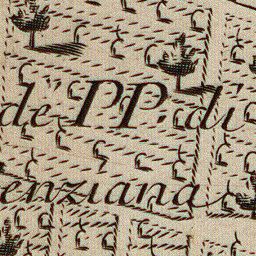 de' PP. di
enziana